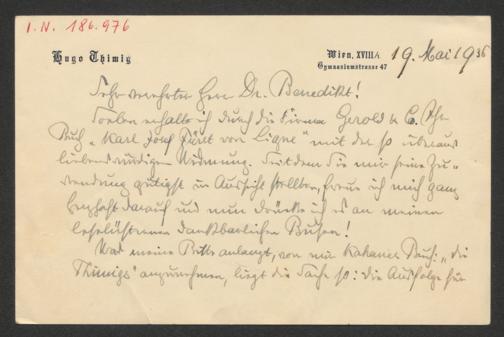 I.N. 186.976
Hugo Thimig
Wien, XVIII/1
Gymnasiumstrasse 47
19. Mai 1936
Sehr verehrter Herr Dr. Benedikt!
Soeben erhalte ich durch die Firma Gerold & Co. Ihr
Buch „Karl Josef Fürst von Ligne“ mit der so überaus
liebenswürdigen Widmung. Seitdem Sie mir seine Zu-
wendung gütigst in Aussicht stellten, freue ich mich ganz
herzhaft darauf und nun drücke ich es an meinen
dankbarlichen Busen!
Was meine Bitte anlangt, von mir Buch: „die
Thimigs“ anzunehmen, liegt die Sache so: die Ausfolge für